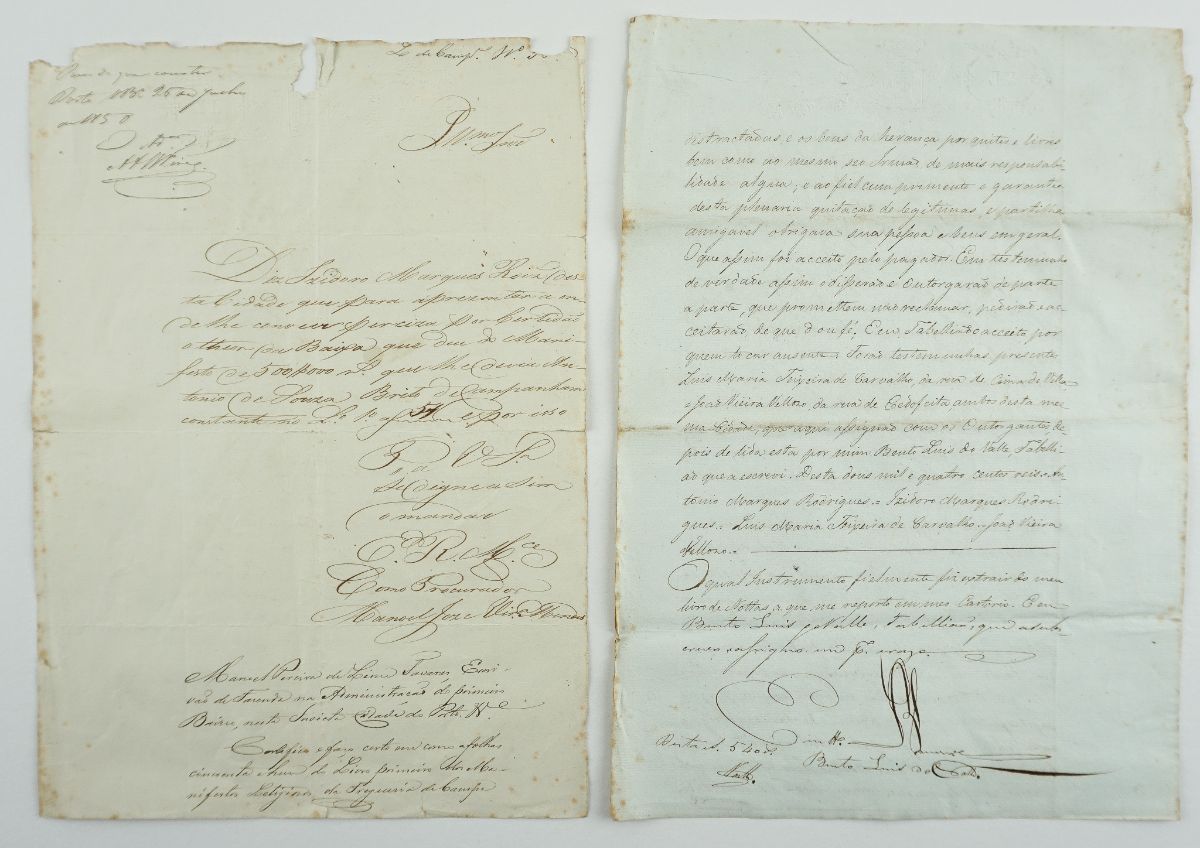 Porto 26 de Julho
Illmo Snr
Diz Izidoro Marques Roiz, des-
ta Cidade que para aprezentar a on-
de lhe convier perciza por Certidão
o theor da Baixa que deu do Mani-
festo de 500$000 rs. que lhe devia An-
tonio de Souza Brito de Campanham
constante no L.º 1.º a f 51 e por isso
P. a V. Sª
Se digne assim
o mandar
E. R. M.ce
Como Procurador
Manoel Joze
Manoel Pereira de Lima Tavares Escri-
vão de Fazenda na Administração do primeiro
Bairro, nesta Invicta Cidade do Porto &ª
Certifico e faço certo em como a folhas
cincoenta e huma do Livro primeiro dos Ma-
nifestos da Freguezia de Campa
distractadas e os bens da herança por quites e livres
bem como ao mesmo seo Irmão de mais responsabi-
lidade algua; e ao fiel cumprimento e garantia
desta plenaria quitação de legitimas, e partilha
amigavel obrigava sua pessoa e bens em geral.
O que assim foi acceito pelo pagador. Em testemunho
de verdade assim o disserão e outorgarão de parte
a parte, que promettem não reclamar, pedirão e ac-
ceitarão, de que dou fé, E eu Tabellião acceito por
quem tocar ausente. Forão testemunhas prezentes
Luis Maria Teixeira de Carvalho, da rua de Cima de Villa
e João Vieira Vellozo, da rua de Cedofeita ambos desta mes-
ma Cidade, que aqui assignão com os Outorgantes de-
pois de lida esta por mim Bento Luis do Valle Tabelli-
ão que a escrevi. Desta dous mil e quatro centos reis. An-
tonio Marques Rodrigues. = Izidoro Marques Rodri-
gues. = Luis Maria Teixeira de Carvalho. = João Vieira
Vellozo. =
O qual Instrumento fielmente fiz extrair do meu
livro de Nottas, a que me reporto em meo Cartorio. E eu
Bento Luis do Valle, Tabellião, que a sub-
crevi e assigno em p. e razo.
Bento Luis do Valle
Desta rs. 540 rs
Valle